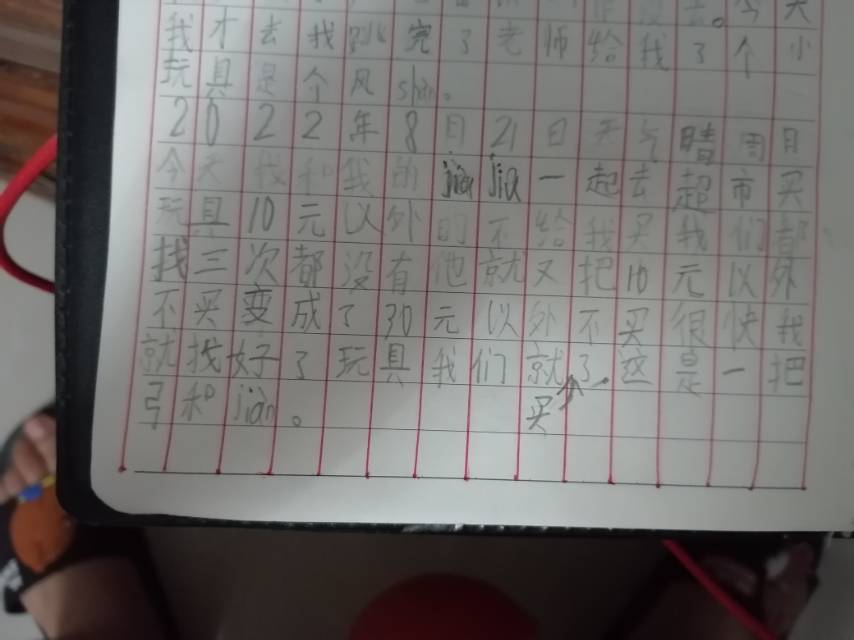 今天
我才去我跳完了老师给我了个小
玩具是个风shàn。
2022年8日21日天气晴周日
今天我和我的jiějiě一起去超市买
玩具10元以外的不给我买我们都
找三次都没有他就又把10元以外
不买变成了30元以外不买很快我
就找好了玩具我们就了。这是一把
买
弓和jiàn。